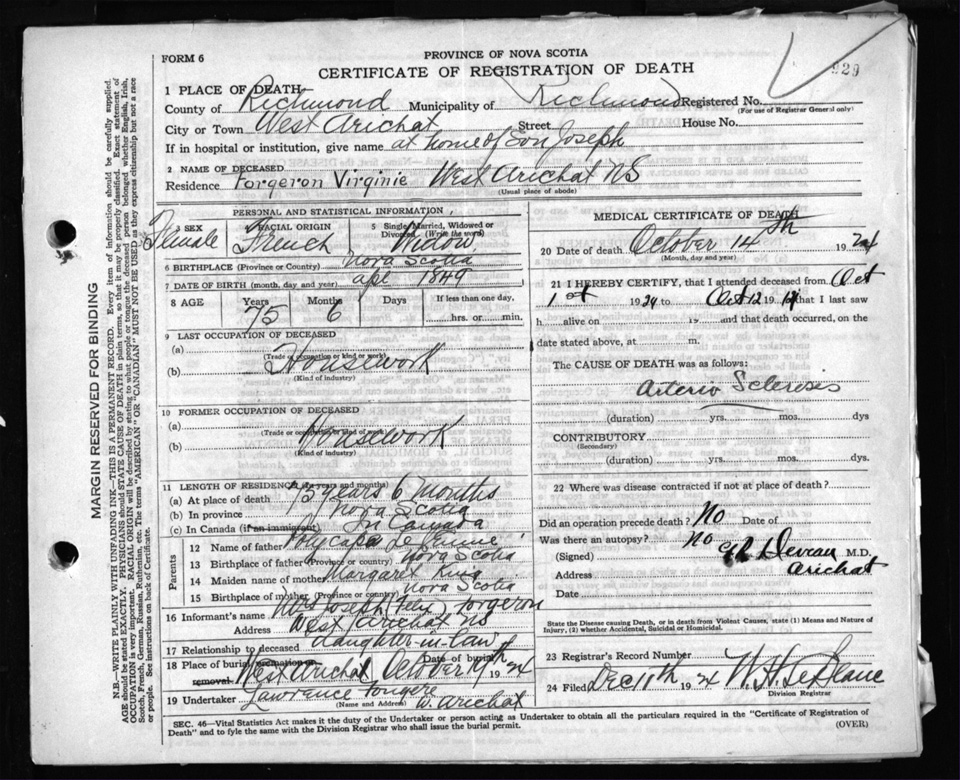 FORM 6
PROVINCE OF NOVA SCOTIA
CERTIFICATE OF REGISTRATION OF DEATH
929
1 PLACE OF DEATH
County of Richmond Municipality of Richmond Registered No.
(For use of Registrar General only)
City or Town West Arichat Street House No.
If in hospital or institution, give name at home of Son Joseph
2 NAME OF DECEASED Forgeron Virginie
Residence West Arichat NS
(Usual place of abode)
PERSONAL AND STATISTICAL INFORMATION
3 SEX Female
4 RACIAL ORIGIN French
5 Single, Married, Widowed or Divorced (Write the word) Widow
6 BIRTHPLACE (Province or Country) Nova Scotia
7 DATE OF BIRTH (month, day and year) apl 1849
8 AGE Years 75 Months 6 Days If less than one day, hrs. or min.
9 LAST OCCUPATION OF DECEASED
(a)
(Trade or occupation or kind of work)
(b) Housework
(Kind of industry)
10 FORMER OCCUPATION OF DECEASED
(a)
(Trade or occupation or kind of work)
(b) Housework
(Kind of industry)
11 LENGTH OF RESIDENCE (in years and months)
(a) At place of death 75 years 6 months
(b) In province Nova Scotia
(c) In Canada (if an immigrant) In Canada
Parents
12 Name of father
13 Birthplace of father (Province or country) Nova Scotia
14 Maiden name of mother Margaret King
15 Birthplace of mother (Province or country) Nova Scotia
16 Informant's name Mrs Joseph (Felix) Forgeron
Address West Arichat NS
17 Relationship to deceased Daughter-in-law
18 Place of burial, cremation or removal West Arichat Date of burial October 17th 1924
19 Undertaker Lawrence Fougere W. Arichat
(Name and Address)
MEDICAL CERTIFICATE OF DEATH
20 Date of death October 14th 1924
(Month, day and year)
21 I HEREBY CERTIFY, that I attended deceased from Oct
1st 1924 to Oct 12 19 that I last saw
h alive on 19 and that death occurred, on
date stated above, at m.
The CAUSE OF DEATH was as follows:
Arterio Sclerosis
(duration) yrs. mos. dys
CONTRIBUTORY
(Secondary)
(duration) yrs. mos. dys.
22 Where was disease contracted if not at place of death?
Did an operation precede death? No Date of
Was there an autopsy? No
(Signed) Deveau M.D.
Address Arichat
Date
State the Disease causing Death, or in death from Violent Causes, state (1) Means and Nature of
Injury, (2) whether Accidental, Suicidal or Homicidal.
23 Registrar's Record Number
24 Filed Dec 11th 1924 W. H. LeBlanc
Division Registrar
SEC. 46—Vital Statistics Act makes it duty of the Undertaker or person acting as Undertaker to obtain all the particulars required in the "Certificate of Registration of
Death" and to fyle the same with the Division Registrar who shall issue the burial permit.
(OVER)
MARGIN RESERVED FOR BINDING
N.B.—WRITE PLAINLY WITH UNFADING INK—THIS IS A PERMANENT RECORD. Every item of information should be carefully supplied.
AGE should be stated EXACTLY. PHYSICIANS should STATE CAUSE OF DEATH in plain terms, so that it may be properly classified. Exact statement of
OCCUPATION is very important. RACIAL ORIGIN will be described by stating to what people or tongue the deceased person belonged whether English, Irish,
Scotch, Frenchman, Russian, Ruthenian, etc. The terms "AMERICAN" OR "CANADIAN" MUST NOT BE USED as they express citizenship but not a race
or people. See instructions on back of Certificate.